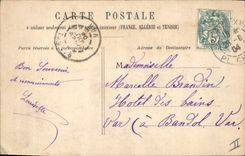 CARTE POSTALE
(FRANCE, ALGÉRIE ET TUNISIE)
Partie réservée à la correspondance
Adresse du Destinataire
Bon Souvenir
et remerciements
Mademoiselle
Marcelle Brandin
Hotel des bains
Var (à Bandol Var)
5
II